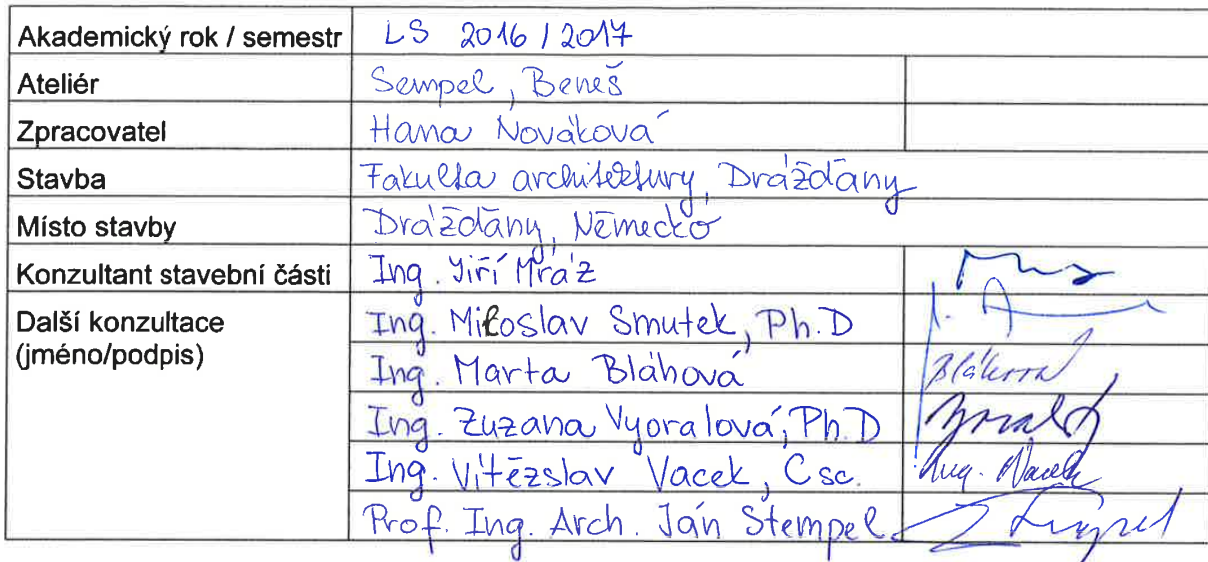 Akademický rok / semestr LS 2016 / 2017
Ateliér Sempel, Beneš
Zpracovatel Hana Nováková
Stavba Fakulta architektury, Drážďany
Místo stavby Drážďany, Německo
Konzultant stavební části Ing. Jiří Mráz
Další konzultace Ing. Miloslav Smutek, Ph.D
(jméno/podpis)
Ing. Marta Bláhová Bláhová
Ing. Zuzana Vyoralová, Ph.D
Ing. Vítězslav Vacek, Csc. Ing. Vacek
Prof. Ing. Arch. Ján Stempel